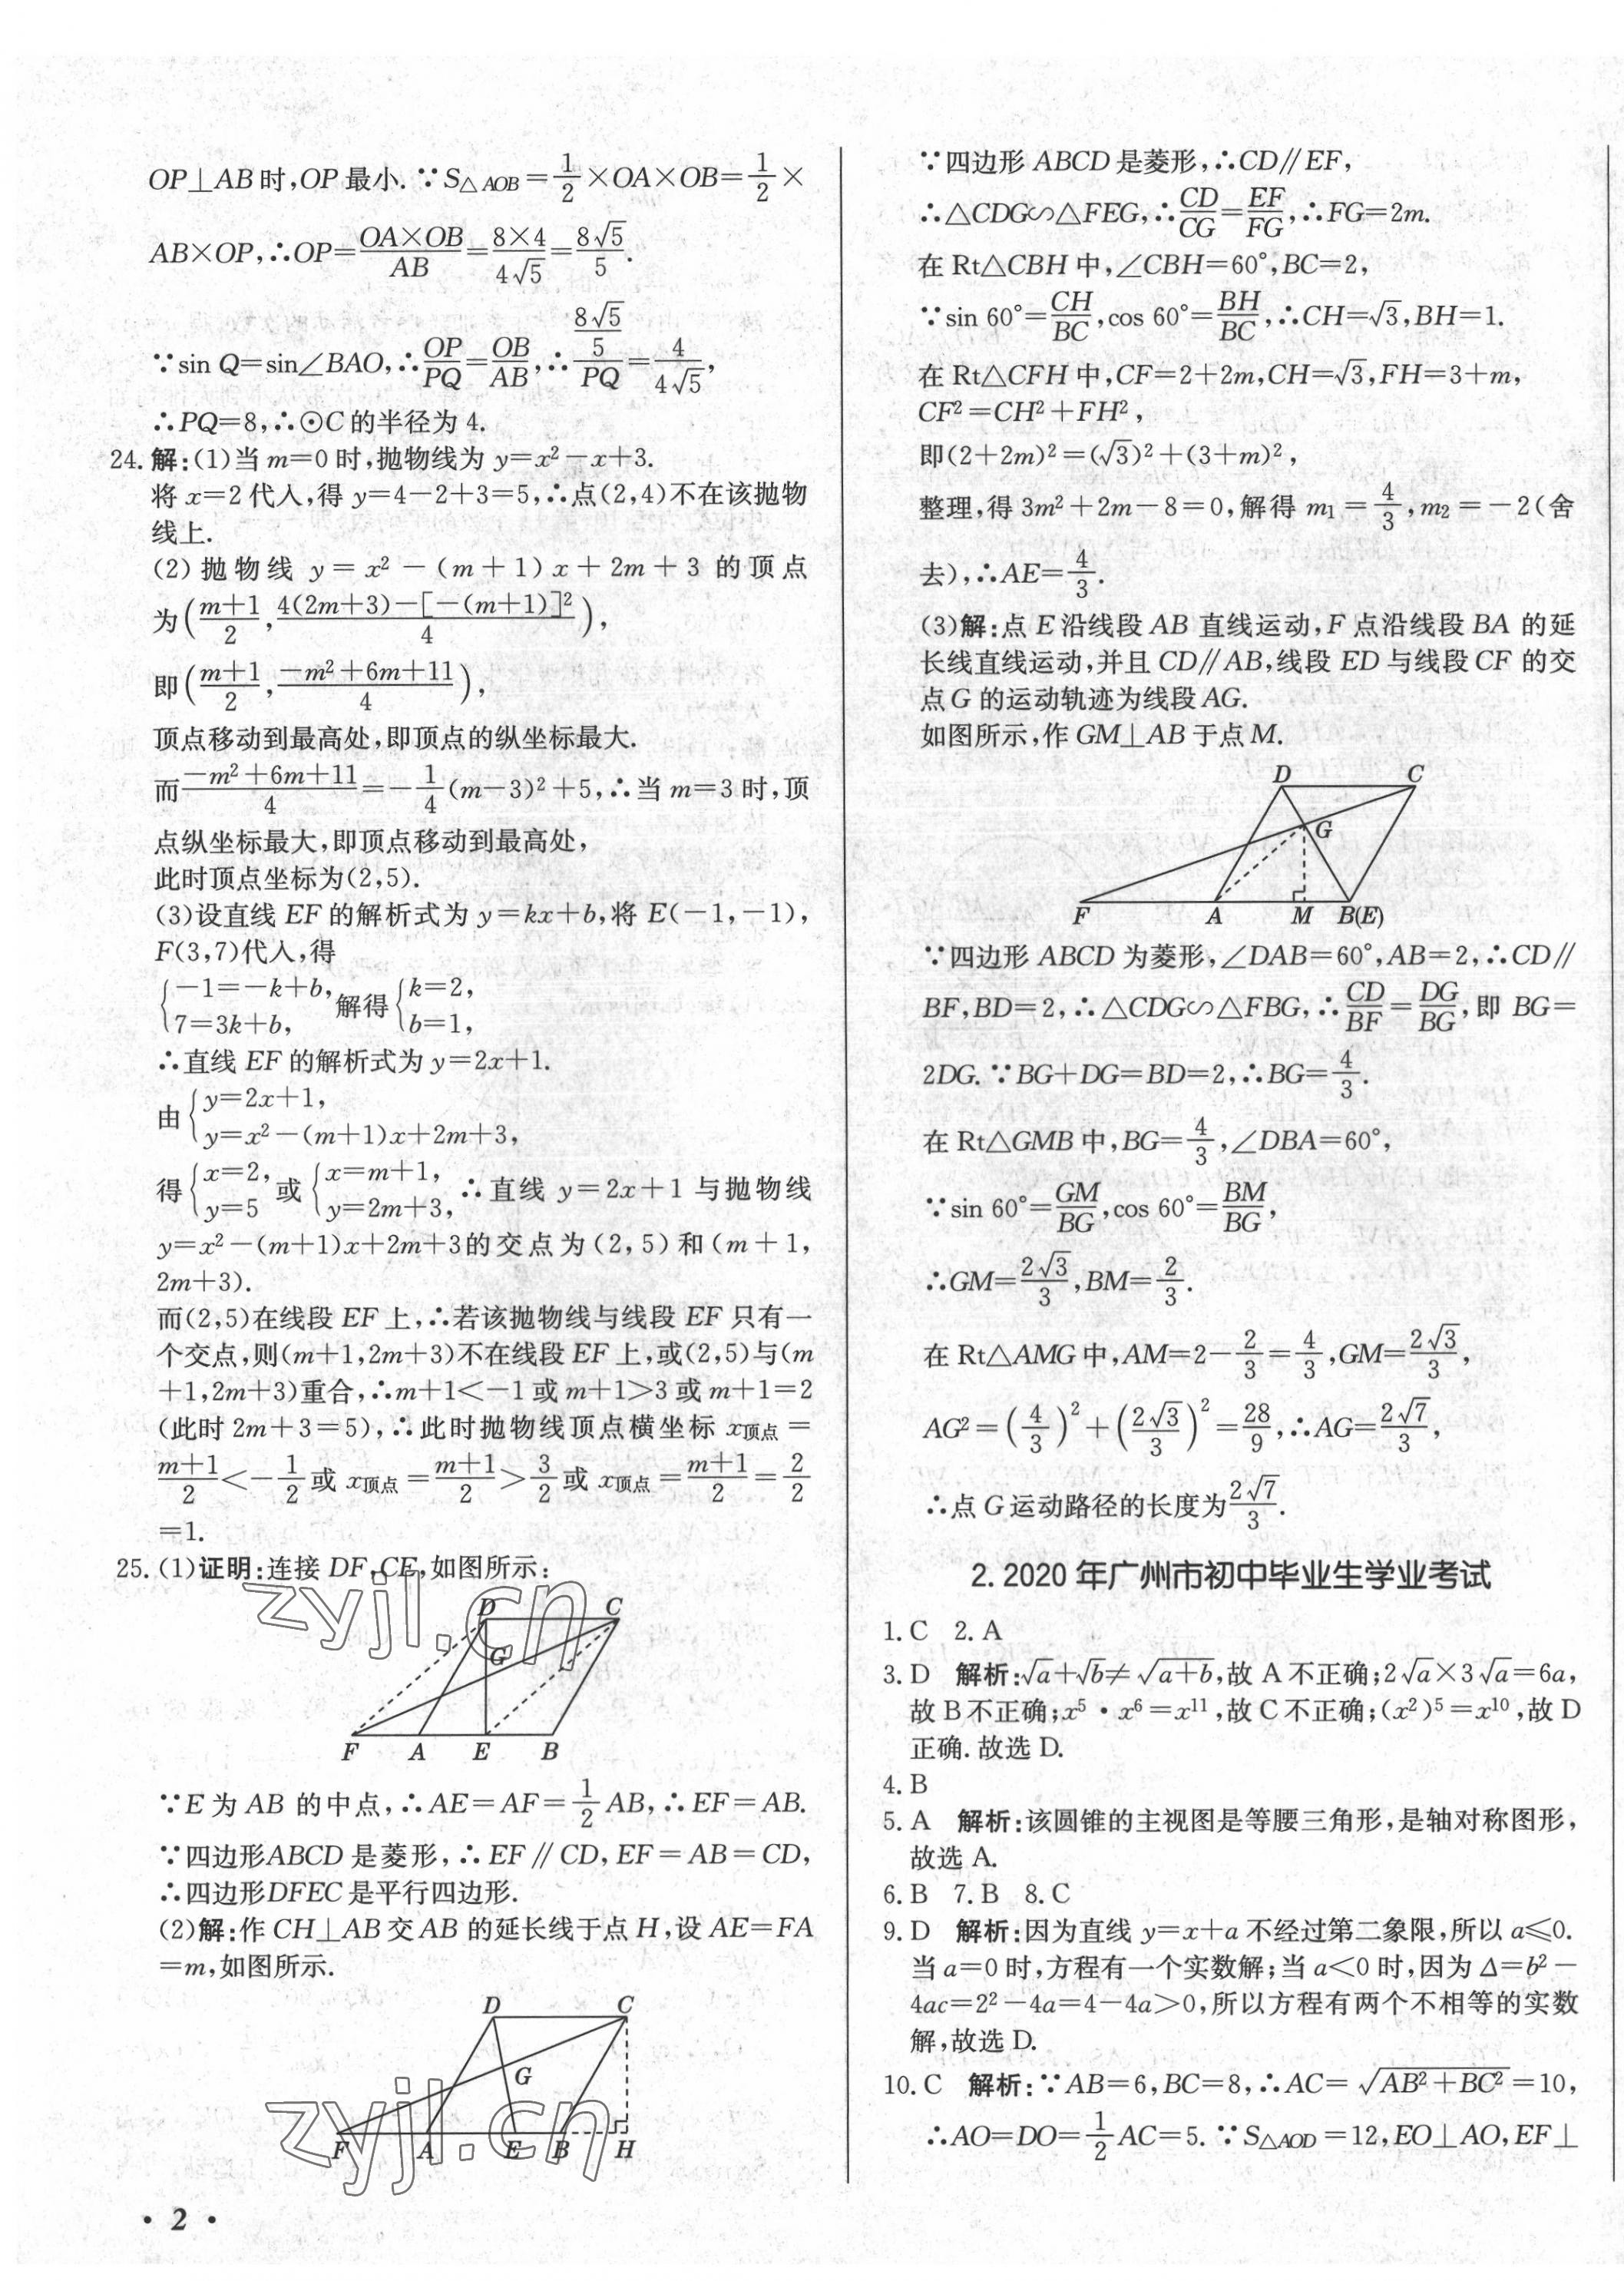 OP⊥AB时,OP最小.∵S△AOB=1/2×OA×OB=1/2×
AB×OP,∴OP=OA×OB/AB=8×4/4√5=8√5/5.
∵sin Q=sin∠BAO,∴OP/PQ=OB/AB,∴(8√5/5)/PQ=4/4√5,
∴PQ=8,∴⊙C的半径为4.
24.解:(1)当m=0时,抛物线为y=x²-x+3.
将x=2代入,得y=4-2+3=5,∴点(2,4)不在该抛物
线上.
(2)抛物线y=x²-(m+1)x+2m+3的顶点
为(m+1/2,4(2m+3)-[-(m+1)]²/4),
即(m+1/2,-m²+6m+11/4),
顶点移动到最高处,即顶点的纵坐标最大.
而-m²+6m+11/4=-1/4(m-3)²+5,∴当m=3时,顶
点纵坐标最大,即顶点移动到最高处,
此时顶点坐标为(2,5).
(3)设直线EF的解析式为y=kx+b,将E(-1,-1),
F(3,7)代入,得
{-1=-k+b, 7=3k+b, 解得{k=2, b=1,
∴直线EF的解析式为y=2x+1.
由{y=2x+1, y=x²-(m+1)x+2m+3,
得{x=2, y=5 或{x=m+1, y=2m+3, ∴直线y=2x+1与抛物线
y=x²-(m+1)x+2m+3的交点为(2,5)和(m+1,
2m+3).
而(2,5)在线段EF上,∴若该抛物线与线段EF只有一
个交点,则(m+1,2m+3)不在线段EF上,或(2,5)与(m
+1,2m+3)重合,∴m+1<-1或m+1>3或m+1=2
(此时2m+3=5),∴此时抛物线顶点横坐标x顶点=
m+1/2<-1/2或x顶点=m+1/2>3/2或x顶点=m+1/2=2/2
=1.
25.(1)证明:连接DF,CE,如图所示:
zyjl.cn
D C
G
F A E B
∵E为AB的中点,∴AE=AF=1/2AB,∴EF=AB.
∵四边形ABCD是菱形,∴EF∥CD,EF=AB=CD,
∴四边形DFEC是平行四边形.
(2)解:作CH⊥AB交AB的延长线于点H,设AE=FA
=m,如图所示.
D C
G
zyjl.cn
F A E B H
• 2 •
∵四边形ABCD是菱形,∴CD∥EF,
∴△CDG∽△FEG,∴CD/CG=EF/FG,∴FG=2m.
在Rt△CBH中,∠CBH=60°,BC=2,
∵sin 60°=CH/BC,cos 60°=BH/BC,∴CH=√3,BH=1.
在Rt△CFH中,CF=2+2m,CH=√3,FH=3+m,
CF²=CH²+FH²,
即(2+2m)²=(√3)²+(3+m)²,
整理,得3m²+2m-8=0,解得m₁=4/3,m₂=-2(舍
去),∴AE=4/3.
(3)解:点E沿线段AB直线运动,F点沿线段BA的延
长线直线运动,并且CD∥AB,线段ED与线段CF的交
点G的运动轨迹为线段AG.
如图所示,作GM⊥AB于点M.
D C
G
F A M B(E)
∵四边形ABCD为菱形,∠DAB=60°,AB=2,∴CD∥
BF,BD=2,∴△CDG∽△FBG,∴CD/BF=DG/BG,即BG=
2DG.∵BG+DG=BD=2,∴BG=4/3.
在Rt△GMB中,BG=4/3,∠DBA=60°,
∵sin 60°=GM/BG,cos 60°=BM/BG,
∴GM=2√3/3,BM=2/3.
在Rt△AMG中,AM=2-2/3=4/3,GM=2√3/3,
AG²=(4/3)²+(2√3/3)²=28/9,∴AG=2√7/3,
∴点G运动路径的长度为2√7/3.
2.2020年广州市初中毕业生学业考试
1.C 2.A
3.D 解析:√a+√b≠√(a+b),故A不正确;2√a×3√a=6a,
故B不正确;x⁵·x⁶=x¹¹,故C不正确;(x²)⁵=x¹⁰,故D
正确.故选D.
4.B
5.A 解析:该圆锥的主视图是等腰三角形,是轴对称图形,
故选A.
6.B 7.B 8.C
9.D 解析:因为直线y=x+a不经过第二象限,所以a≤0.
当a=0时,方程有一个实数解;当a<0时,因为Δ=b²-
4ac=2²-4a=4-4a>0,所以方程有两个不相等的实数
解,故选D.
10.C 解析:∵AB=6,BC=8,∴AC=√(AB²+BC²)=10,
∴AO=DO=1/2AC=5.∵S△AOD=12,EO⊥AO,EF⊥